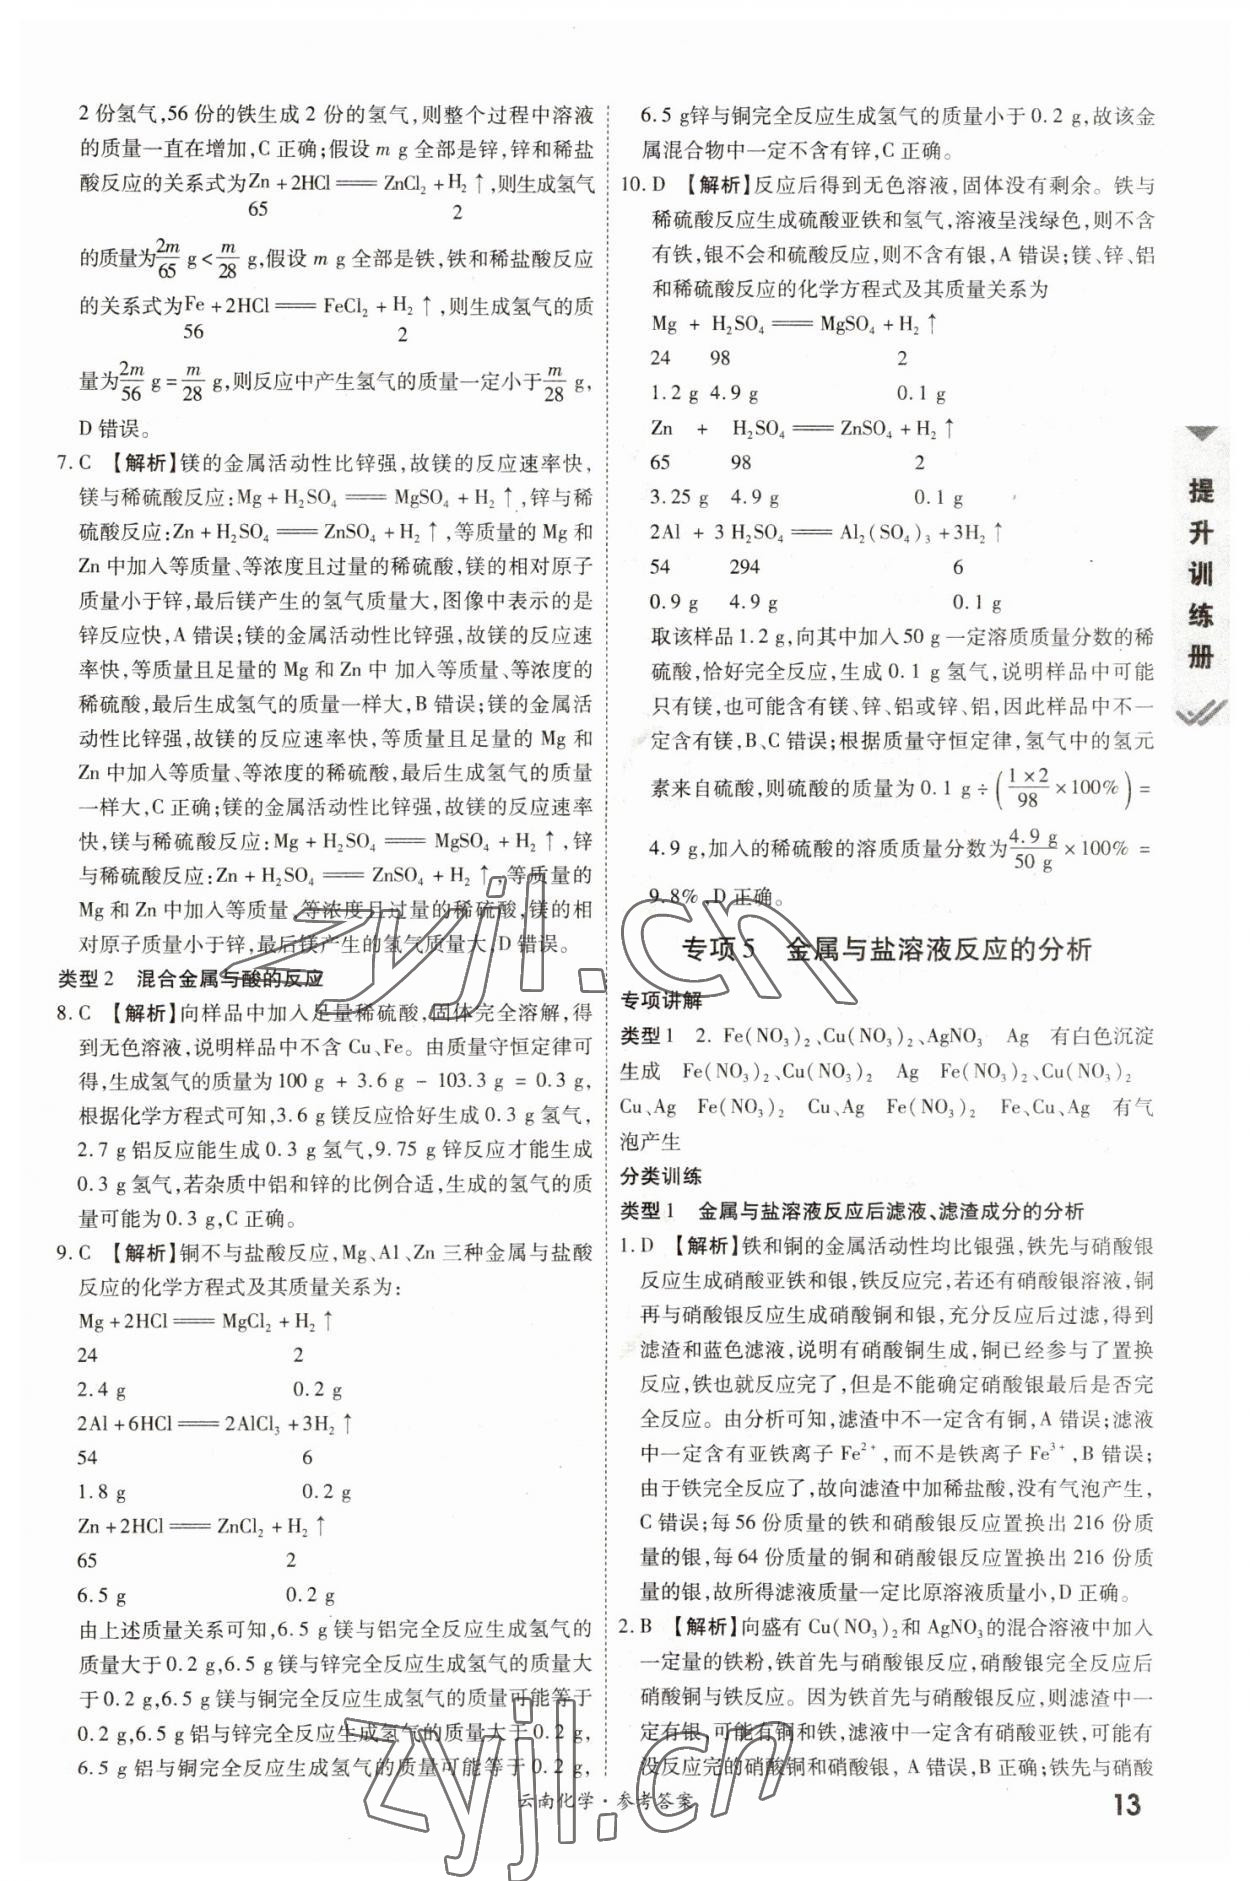 2 份氢气,56 份的铁生成 2 份的氢气,则整个过程中溶液
的质量一直在增加,C 正确;假设 m g 全部是锌,锌和稀盐
酸反应的关系式为Zn + 2HCl═ZnCl₂ + H₂↑,则生成氢气
65 2
的质量为2m/65 g < m/28 g,假设 m g 全部是铁,铁和稀盐酸反应
的关系式为Fe + 2HCl═FeCl₂ + H₂↑,则生成氢气的质
56 2
量为2m/56 g = m/28 g,则反应中产生氢气的质量一定小于m/28 g,
D 错误。
7. C 【解析】镁的金属活动性比锌强,故镁的反应速率快,
镁与稀硫酸反应:Mg + H₂SO₄═MgSO₄ + H₂↑,锌与稀
硫酸反应:Zn + H₂SO₄═ZnSO₄ + H₂↑,等质量的 Mg 和
Zn 中加入等质量、等浓度且过量的稀硫酸,镁的相对原子
质量小于锌,最后镁产生的氢气质量大,图像中表示的是
锌反应快,A 错误;镁的金属活动性比锌强,故镁的反应速
率快,等质量且足量的 Mg 和 Zn 中 加入等质量、等浓度的
稀硫酸,最后生成氢气的质量一样大,B 错误;镁的金属活
动性比锌强,故镁的反应速率快,等质量且足量的 Mg 和
Zn 中加入等质量、等浓度的稀硫酸,最后生成氢气的质量
一样大,C 正确;镁的金属活动性比锌强,故镁的反应速率
快,镁与稀硫酸反应:Mg + H₂SO₄═MgSO₄ + H₂↑,锌
与稀硫酸反应:Zn + H₂SO₄═ZnSO₄ + H₂↑,等质量的
Mg 和 Zn 中加入等质量、等浓度且过量的稀硫酸,镁的相
对原子质量小于锌,最后镁产生的氢气质量大,D 错误。
类型 2 混合金属与酸的反应
8. C 【解析】向样品中加入足量稀硫酸,固体完全溶解,得
到无色溶液,说明样品中不含 Cu、Fe。由质量守恒定律可
得,生成氢气的质量为 100 g + 3.6 g - 103.3 g = 0.3 g,
根据化学方程式可知,3.6 g 镁反应恰好生成 0.3 g 氢气,
2.7 g 铝反应能生成 0.3 g 氢气,9.75 g 锌反应才能生成
0.3 g 氢气,若杂质中铝和锌的比例合适,生成的氢气的质
量可能为 0.3 g,C 正确。
9. C 【解析】铜不与盐酸反应,Mg、Al、Zn 三种金属与盐酸
反应的化学方程式及其质量关系为:
Mg + 2HCl═MgCl₂ + H₂↑
24 2
2.4 g 0.2 g
2Al + 6HCl═2AlCl₃ + 3H₂↑
54 6
1.8 g 0.2 g
Zn + 2HCl═ZnCl₂ + H₂↑
65 2
6.5 g 0.2 g
由上述质量关系可知,6.5 g 镁与铝完全反应生成氢气的
质量大于 0.2 g,6.5 g 镁与锌完全反应生成氢气的质量大
于 0.2 g,6.5 g 镁与铜完全反应生成氢气的质量可能等于
0.2 g,6.5 g 铝与锌完全反应生成氢气的质量大于 0.2 g,
6.5 g 铝与铜完全反应生成氢气的质量可能等于 0.2 g,
6.5 g锌与铜完全反应生成氢气的质量小于 0.2 g,故该金
属混合物中一定不含有锌,C 正确。
10. D 【解析】反应后得到无色溶液,固体没有剩余。铁与
稀硫酸反应生成硫酸亚铁和氢气,溶液呈浅绿色,则不含
有铁,银不会和硫酸反应,则不含有银,A 错误;镁、锌、铝
和稀硫酸反应的化学方程式及其质量关系为
Mg + H₂SO₄═MgSO₄ + H₂↑
24 98 2
1.2 g 4.9 g 0.1 g
Zn + H₂SO₄═ZnSO₄ + H₂↑
65 98 2
3.25 g 4.9 g 0.1 g
2Al + 3 H₂SO₄═Al₂(SO₄)₃ + 3H₂↑
54 294 6
0.9 g 4.9 g 0.1 g
取该样品 1.2 g,向其中加入 50 g 一定溶质质量分数的稀
硫酸,恰好完全反应,生成 0.1 g 氢气,说明样品中可能
只有镁,也可能含有镁、锌、铝或锌、铝,因此样品中不一
定含有镁,B、C 错误;根据质量守恒定律,氢气中的氢元
素来自硫酸,则硫酸的质量为 0.1 g ÷ (1×2/98 × 100%) =
4.9 g,加入的稀硫酸的溶质质量分数为4.9 g/50 g × 100% =
9.8%,D 正确。
专项 5 金属与盐溶液反应的分析
专项讲解
类型 1 2. Fe(NO₃)₂、Cu(NO₃)₂、AgNO₃ Ag 有白色沉淀
生成 Fe(NO₃)₂、Cu(NO₃)₂ Ag Fe(NO₃)₂、Cu(NO₃)₂
Cu、Ag Fe(NO₃)₂ Cu、Ag Fe(NO₃)₂ Fe、Cu、Ag 有气
泡产生
分类训练
类型 1 金属与盐溶液反应后滤液、滤渣成分的分析
1. D 【解析】铁和铜的金属活动性均比银强,铁先与硝酸银
反应生成硝酸亚铁和银,铁反应完,若还有硝酸银溶液,铜
再与硝酸银反应生成硝酸铜和银,充分反应后过滤,得到
滤渣和蓝色滤液,说明有硝酸铜生成,铜已经参与了置换
反应,铁也就反应完了,但是不能确定硝酸银最后是否完
全反应。由分析可知,滤渣中不一定含有铜,A 错误;滤液
中一定含有亚铁离子 Fe²⁺,而不是铁离子 Fe³⁺,B 错误;
由于铁完全反应了,故向滤渣中加稀盐酸,没有气泡产生,
C 错误;每 56 份质量的铁和硝酸银反应置换出 216 份质
量的银,每 64 份质量的铜和硝酸银反应置换出 216 份质
量的银,故所得滤液质量一定比原溶液质量小,D 正确。
2. B 【解析】向盛有 Cu(NO₃)₂和 AgNO₃的混合溶液中加入
一定量的铁粉,铁首先与硝酸银反应,硝酸银完全反应后
硝酸铜与铁反应。因为铁首先与硝酸银反应,则滤渣中一
定有银,可能有铜和铁,滤液中一定含有硝酸亚铁,可能有
没反应完的硝酸铜和硝酸银, A 错误,B 正确;铁先与硝酸
提升训练册
zyjl.cn
zyjl.cn
云南化学·参考答案
13